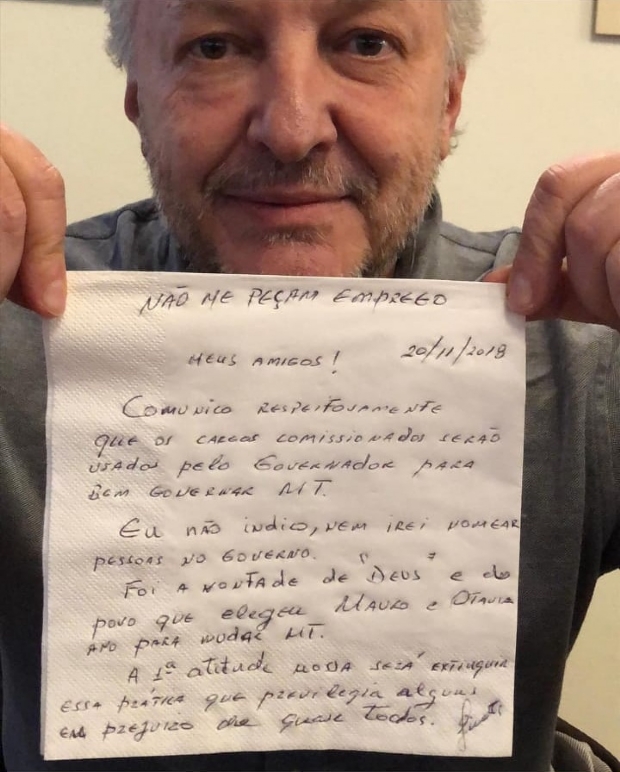 NÃO ME PEÇAM EMPREGO
MEUS AMIGOS! 20/11/2018
COMUNICO RESPEITOSAMENTE
QUE OS CARGOS COMISSIONADOS SERÃO
USADOS PELO GOVERNADOR PARA
BEM GOVERNAR MT.
EU NÃO INDICO, NEM IREI NOMEAR
PESSOAS NO GOVERNO.
FOI A VONTADE de "DEUS" e do
povo que elegeu MAURO e OTAVIA
ANO PARA MUDAR MT.
A 1ª atitude NOSSA SERÁ EXTINGUIR
ESSA PRÁTICA que previlegia alguns
EM PREJUIZO de quase todos.